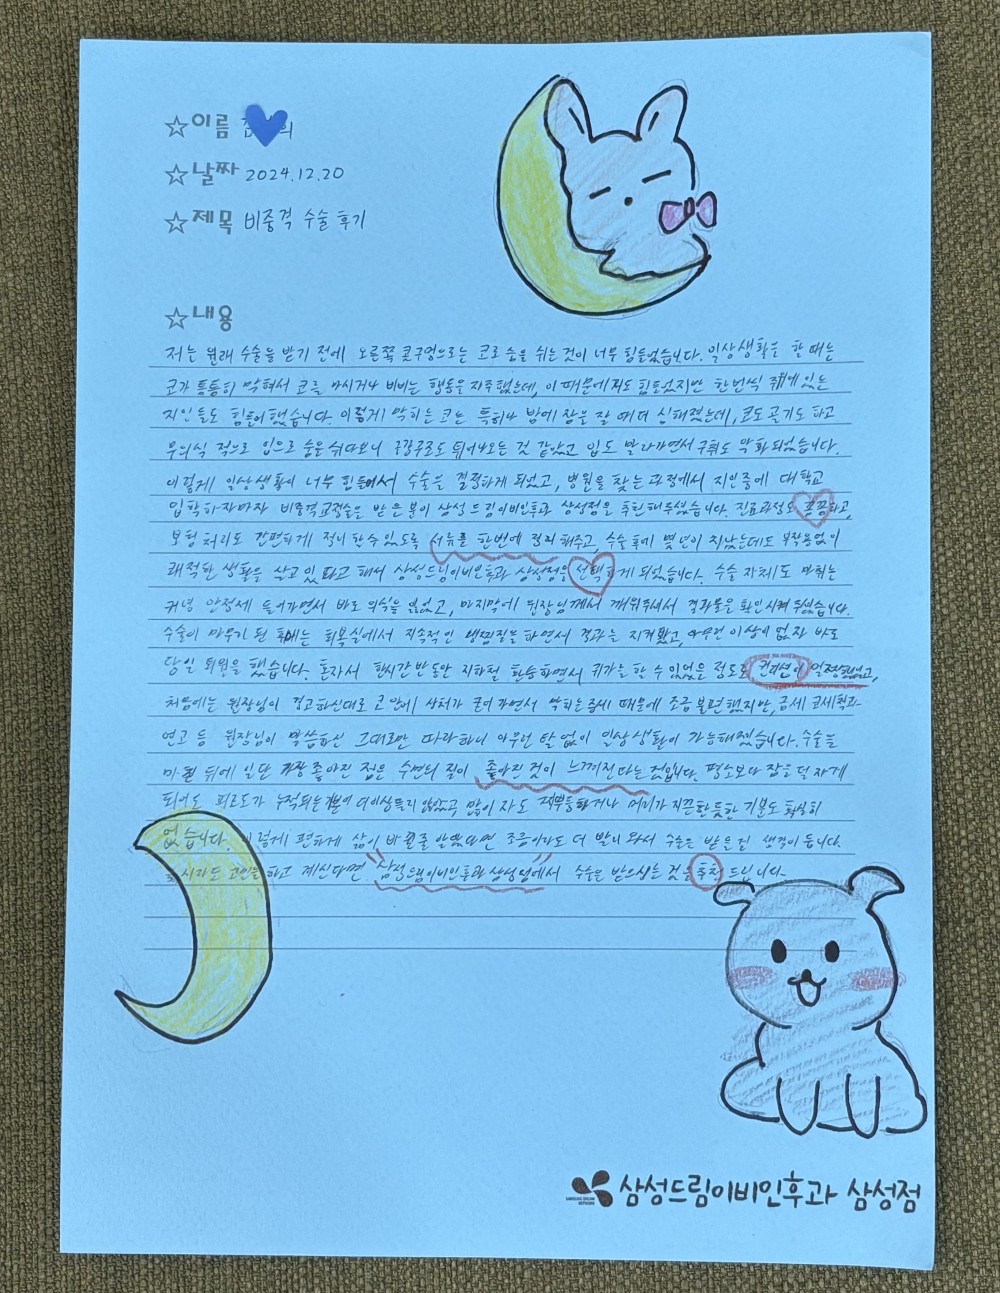 ☆이름 김 희
☆날짜 2024.12.20
☆제목 비중격 수술 후기
☆내용
저는 원래 수술을 받기 전에 오른쪽 콧구멍으로는 코로 숨을 쉬는것이 너무 힘들었습니다. 일상생활을 할 때는
코가 통통히 막혀서 코를 마시거나 비비는 행동을 자주했는데, 이 때문에 저도 힘들었지만 한번씩 주위에 있는
지인들도 힘들어했습니다. 이렇게 막히는 코는 특히나 밤에 잠을 잘 때 더 심해졌는데, 코도 골기도 하고
무의식 적으로 입으로 숨을 쉬다보니 구강구조도 튀어나오는 것 같았고 입도 말라가면서 구취도 악화되었습니다.
이렇게 일상생활이 너무 힘들어서 수술을 결정하게 되었고, 병원을 찾는 과정에서 지인중에 대학교
입학하자마자 비중격교정술을 받은 분이 삼성드림이비인후과 삼성점을 추천해주셨습니다. 진료과정도 꼼꼼하고,
보험처리도 간편하게 접수할수 있도록 서류를 한번에 정리해주고, 수술 후에 몇년이 지났는데도 부작용없이
쾌적한 생활을 살고있다고 해서 삼성드림이비인후과 삼성점을 선택하게 되었습니다. 수술 자체도 마취는
커녕 안정제 들어가면서 바로 의식을 잃었고, 마지막에 원장님께서 깨워주셔서 결과물을 확인시켜 주셨습니다.
수술이 마무리 된 후에는 회복실에서 지속적인 냉찜질을 하면서 경과를 지켜봤고, 아무런 이상이 없자 바로
당일 퇴원을 했습니다. 혼자서 한시간 반동안 지하철 환승하면서 귀가를 할 수 있었을 정도로 컨디션이 멀쩡했었고,
처음에는 원장님이 경고하신대로 코 안에 상처가 굳어가면서 막히는 증세 때문에 조금 불편했지만, 금세 코세척과
연고 등 원장님이 말씀하신 그대로만 따라하니 아무런 탈 없이 일상생활이 가능해졌습니다. 수술을
마친 뒤에 일단 가장 좋아진 점은 수면의 질이 좋아진 것이 느껴진다는 것입니다. 평소보다 잠을 덜 자게
되어도 피로도가 누적되는 기분이 더이상 들지 않았고, 많이 자도 찌뿌둥하거나 머리가 지끈한듯한 기분도 확실히
없습니다. 이렇게 편하게 삶이 바뀔줄 알았다면 조금이라도 더 빨리 와서 수술을 받을걸 생각이 듭니다.
혹시라도 고민을 하고 계신다면 "삼성드림이비인후과 삼성점"에서 수술을 받으시는 것을 추천 드립니다.
삼성드림이비인후과 삼성점